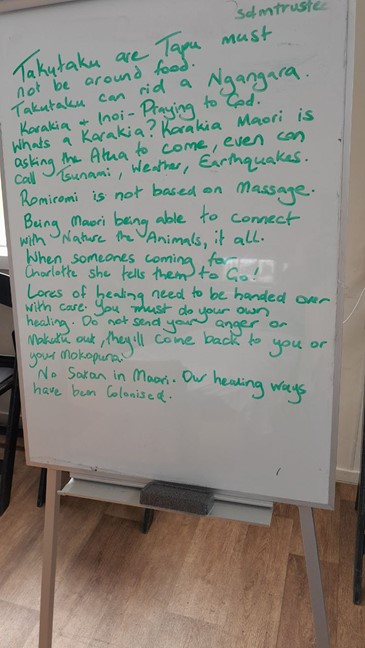 sdmtrustee
Takutaku are Tapu must
not be around food.
Takutaku can rid a Ngangara.
Karakia + Inoi - Praying to God.
Whats a Karakia? Karakia Maori is
asking the Atua to come, even can
call Tsunami, Weather, Earthquakes.
Romiromi is not based on Massage.
Being Maori being able to connect
with Nature the Animals, it all.
When someones coming for
Charlotte she tells them to Go!
Lores of healing need to be handed over
with care. You must do your own
healing. Do not send your anger or
Makutu out, they'll come back to you or
your Mokopuna.
No Satan in Maori. Our healing ways
have been Colonised.